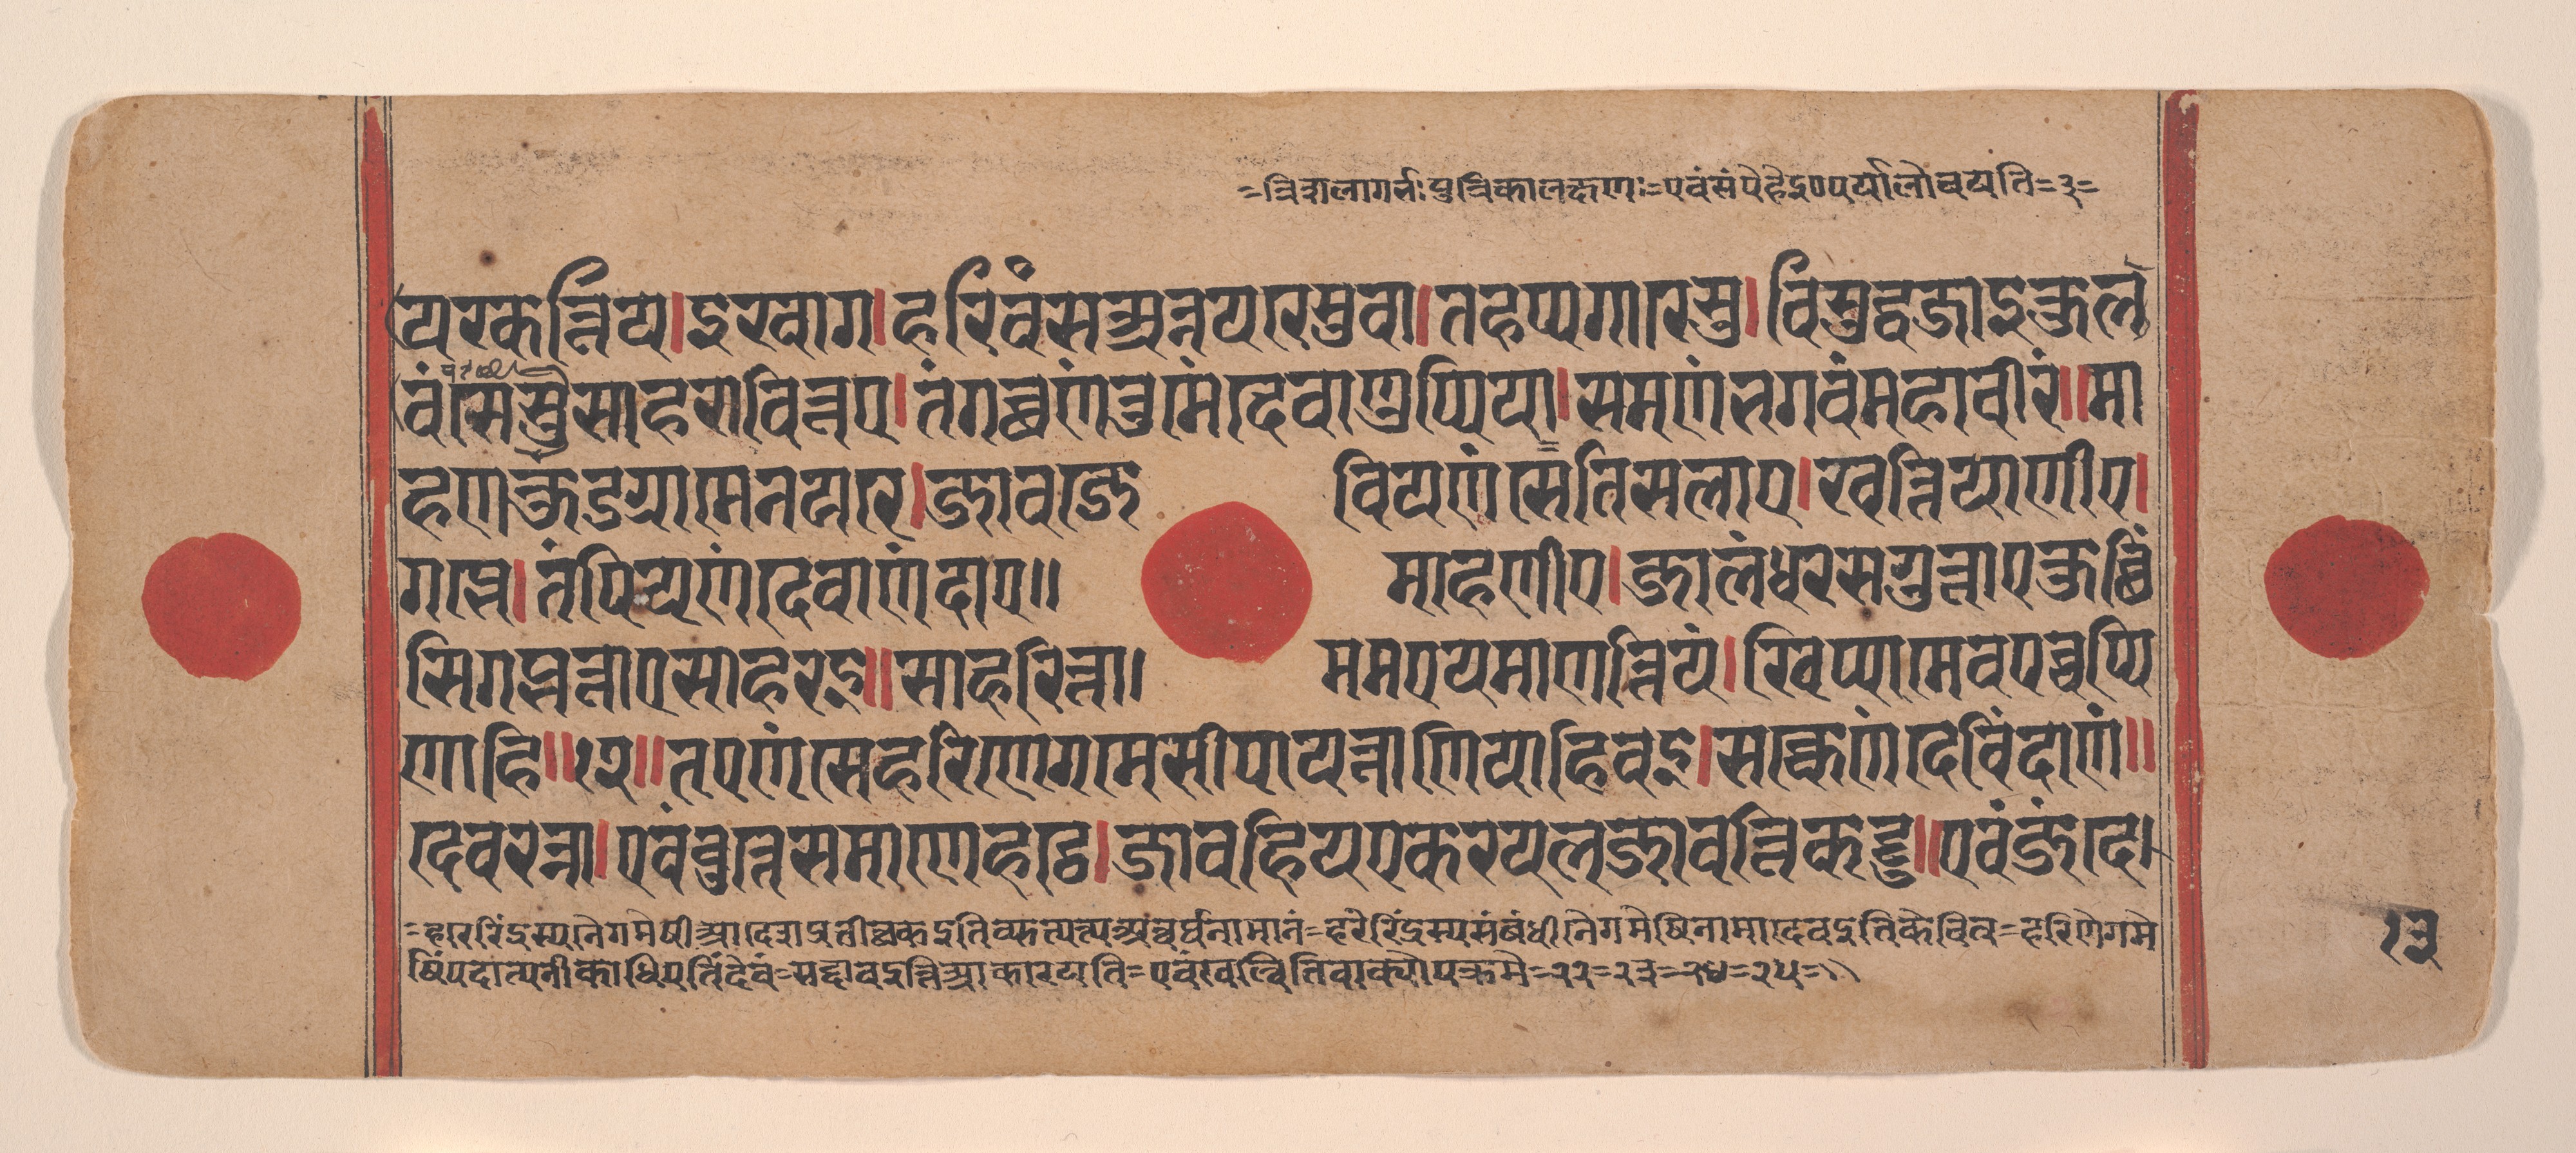 =त्रिशलागर्भः पुत्रिकालक्षणः=एवंसंपेहेइएपर्यालोचयति=३=
यखत्तिय।इक्खाग।हरिवंसअन्नयरेसुवा।तहप्पगारेसु।विसुद्धजाइकुल
वंसेसुसाहरावित्तए।तंगच्छणंतुमंदेवाणुप्पिया।समणंभगवंमहावीरं॥मा
हणकुंडग्गामेनयरे।जावजे वियणंसेतिसलाए।खत्तियाणीए।
गप्भे।तंपियणंदेवाणंदाए॥ माहणीए।जालंधरसगुत्ताएकुच्छिं
सिगप्भत्ताएसाहरइ॥साहरित्ता। ममएयमाणत्तियं।खिप्पामेवपच्चप्पि
णाहि॥१२॥तएणंसेहरिणेगमेसीपायत्ताणियाहिवइ।सक्केणंदेविंदेणं॥
देवरन्ना।एवंवुत्तेसमाणेहट्ठे।जावहियएकरयलजावत्तिकट्टु॥एवंजंदे।
=हरेरिंद्रस्यनैगमेषीआदेशप्रतीच्छकइतिव्युत्पत्त्यअन्वर्थनामानं=हरेरिंद्रस्यसंबंधीनैगमेषिनामादेवइतिकेचित्=हरिणेगमे
षिंपदात्यनीकाधिपतिंदेवं=सद्दावइत्तिआकारयति=एवंखल्वितिवाक्योपक्रमे=२२=२३=२४=२५=
१३